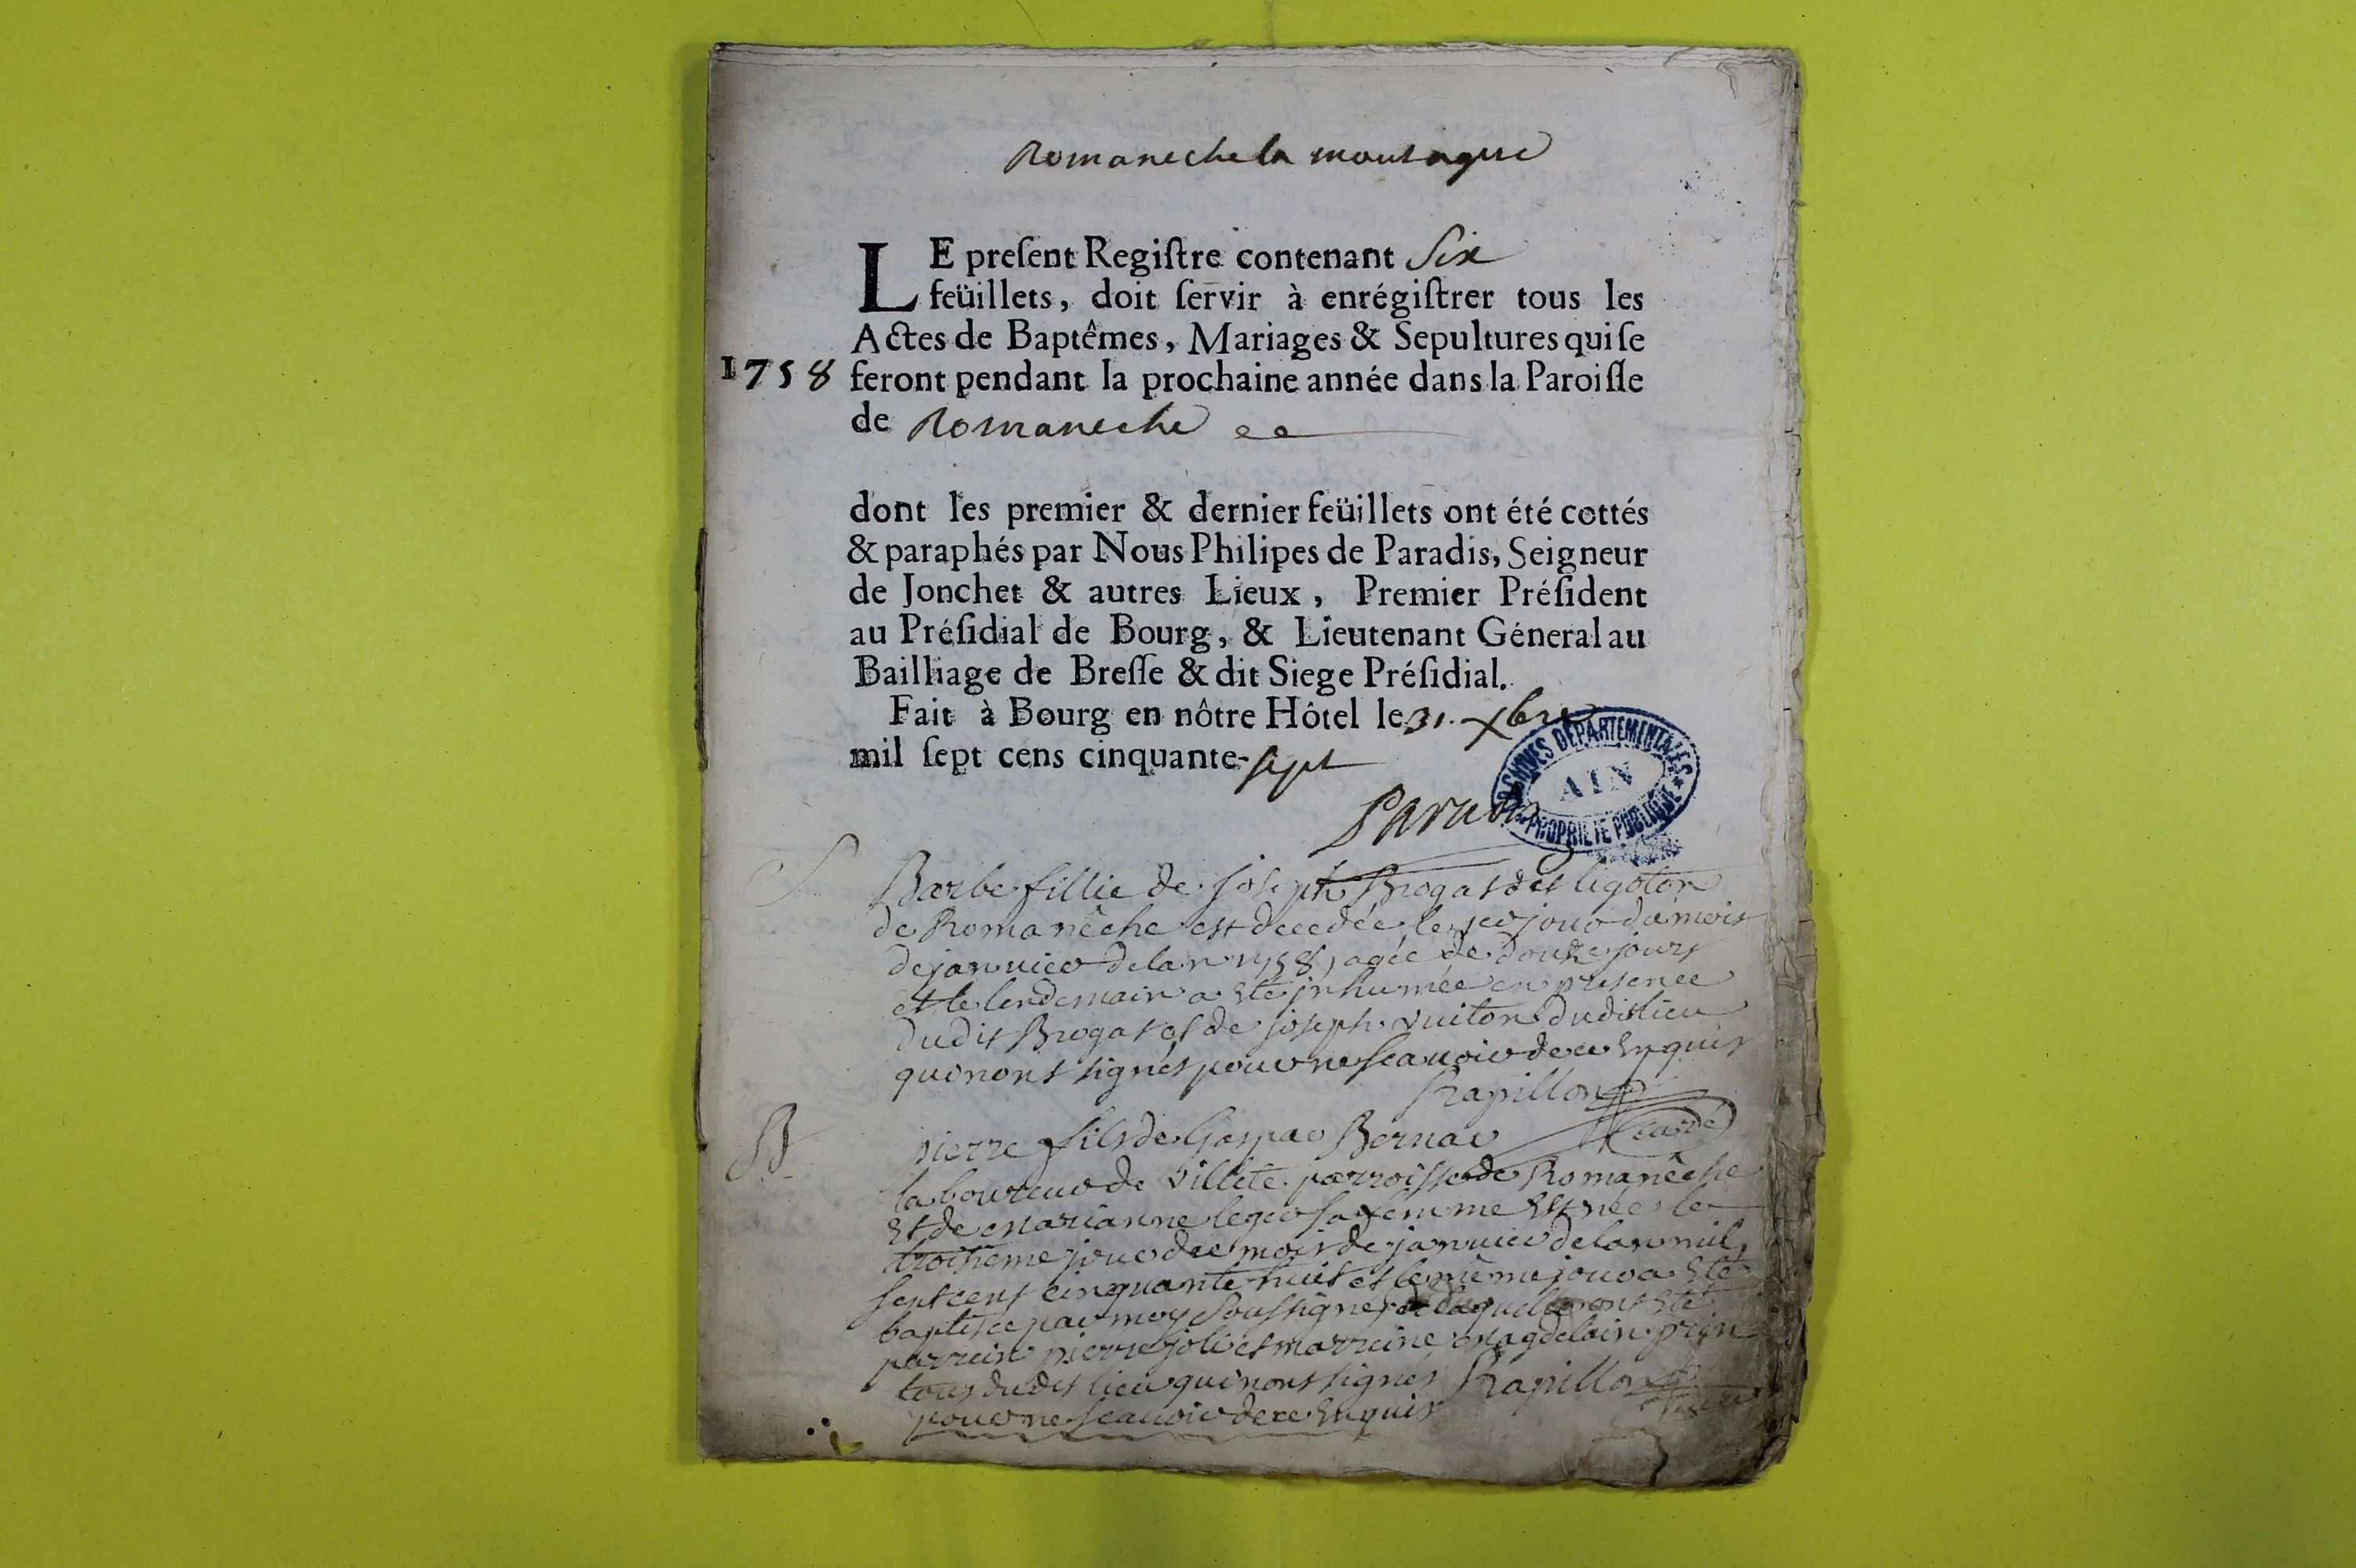 Romaneche la montagne
LE preſent Regiſtre contenant Six
feüillets, doit ſervir à enrégiſtrer tous les
Actes de Baptêmes, Mariages & Sepultures qui ſe
1758 feront pendant la prochaine année dans la Paroiſſe
de Romaneche
dont les premier & dernier feüillets ont été cottés
& paraphés par Nous Philipes de Paradis, Seigneur
de Jonchet & autres Lieux, Premier Préſident
au Préſidial de Bourg, & Lieutenant Géneral au
Bailliage de Breſſe & dit Siege Préſidial.
Fait à Bourg en nôtre Hôtel le 31. Xbre
mil ſept cens cinquante-sept
ARCHIVES DEPARTEMENTALES
AIN
PROPRIETE PUBLIQUE
Paradis
S
Barbe fillie de joseph Brogat dit ligoton
de Romanêche est decedée le jour du mois
de janvier de lan 1758, agée de douze jours
et le lendemain a eté jnhumée en presence
dudit Brogat et de joseph vuiton dudit lieu
qui nont signés pour ne scavoir de ce enquis
Rapillon
curé
B
pierre fils de Gaspar Bernar
laboureur de Villete parroisse de Romanêche
et de marianne leger sa femme est née le
troisieme jour du mois de janvier de lan mil
sept cent cinquante huit et le même jour a eté
baptisée par moy soussigné ont eté
parrein pierre joli et marreine magdelain
tous dudit lieu qui nont signés Rapillon
pour ne scavoir de ce enquis